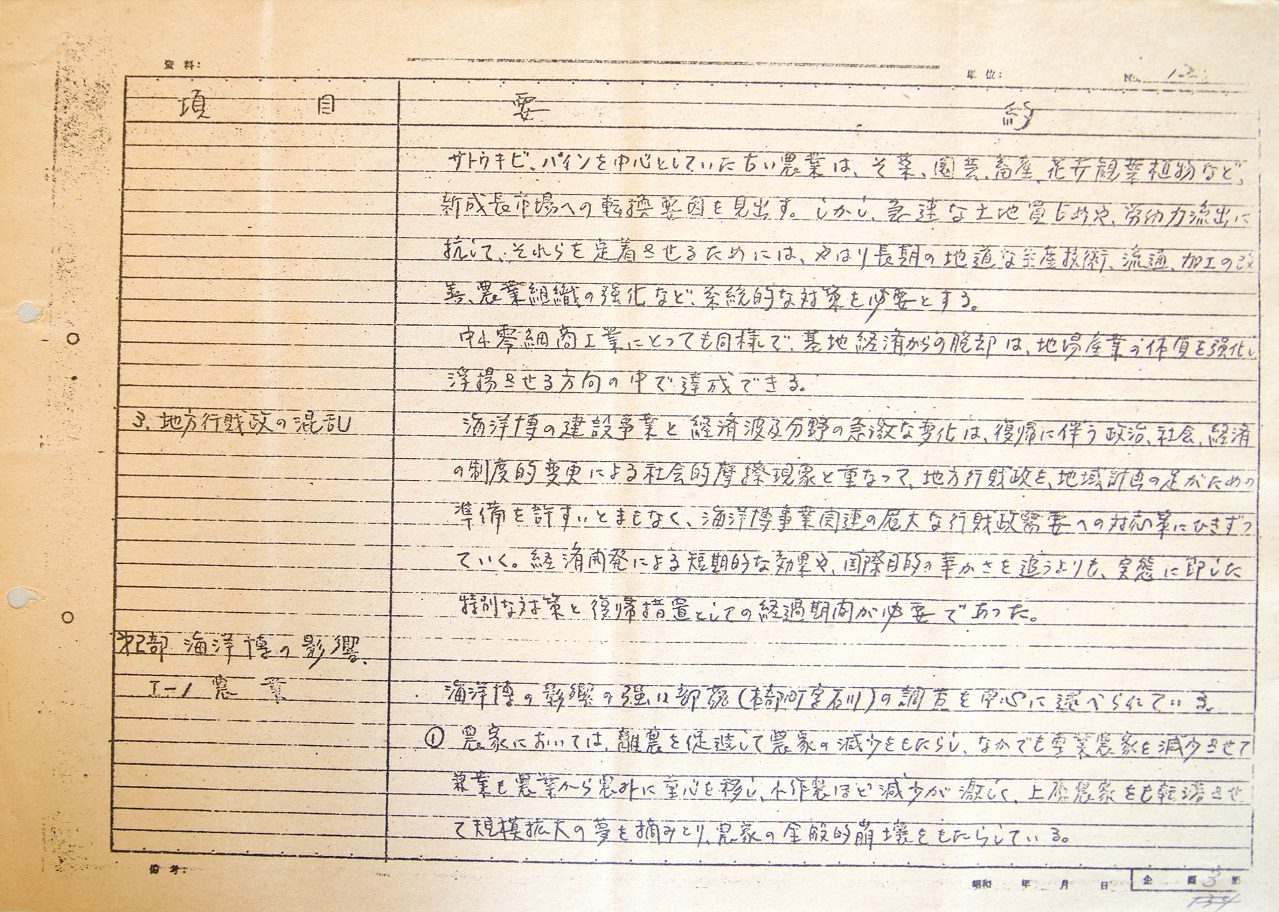 資料:
単位:
No. 12
項 目
要 約
サトウキビ、パインを中心としていた古い農業は、そ菜、園芸、畜産、花卉観葉植物など、
新成長市場への転換要因を見出す。しかし、急速な土地買占めや、労働力流出に
抗して、それらを定着させるためには、やはり長期の地道な生産技術、流通、加工の改
善、農業組織の強化など、系統的な対策を必要とする。
中小零細商工業にとっても同様で、基地経済からの脱却は、地場産業の体質を強化し
浮揚させる方向の中で達成できる。
3. 地方行財政の混乱
海洋博の建設事業と経済波及分野の急激な変化は、復帰に伴う政治、社会、経済
の制度的変更による社会的摩擦現象と重なって、地方行財政を、地域計画の足がための
準備を許すいとまもなく、海洋博事業関連の尨大な行財政需要への対応策にひきずっ
ていく。経済開発による短期的な効果や、国際目的の華かさを追うよりも、実態に即した
特別な対策と復帰措置としての経過期間が必要であった。
第2部 海洋博の影響.
I-1 農業
海洋博の影響の強い部落(本部町字石川)の調査を中心に述べられている。
① 農家においては、離農を促進して農家の減少をもたらし、なかでも専業農家を減少させて
兼業も農業から農外に重心を移し、小作農ほど減少が激しく、上層農家をも転落させ
て規模拡大の夢を摘みとり、農家の全般的崩壊をもたらしている。
備考:
昭和 年 月 日
企画 3 部